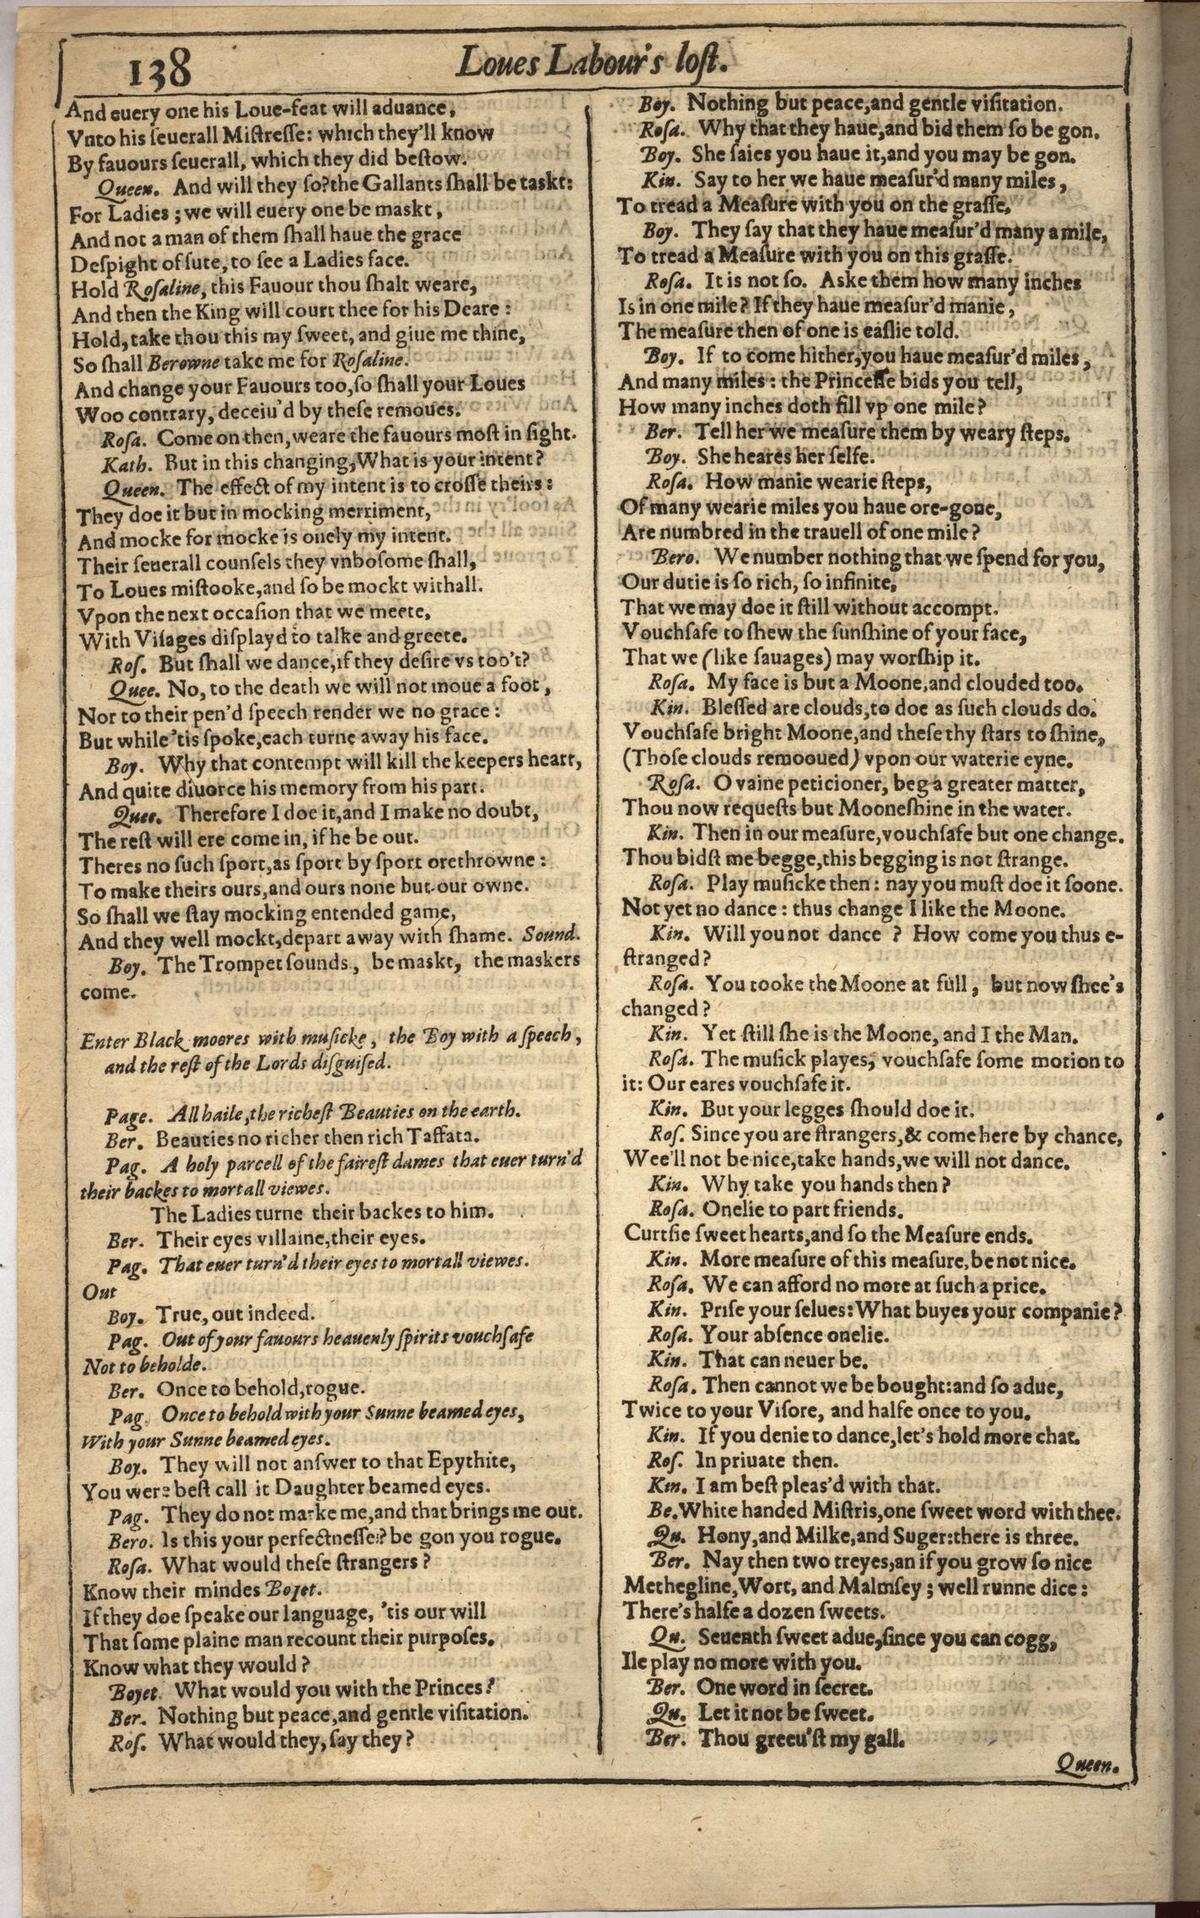 138
Loues Labour's lost.
And euery one his Loue-feat will aduance,
Vnto his seuerall Mistresse: which they'll know
By fauours seuerall, which they did bestow.
Queen. And will they so? the Gallants shall be taskt:
For Ladies; we will euery one be maskt,
And not a man of them shall haue the grace
Despight of sute, to see a Ladies face.
Hold Rosaline, this Fauour thou shalt weare,
And then the King will court thee for his Deare:
Hold, take thou this my sweet, and giue me thine,
So shall Berowne take me for Rosaline.
And change your Fauours too, so shall your Loues
Woo contrary, deceiu'd by these remoues.
Rosa. Come on then, weare the fauours most in sight.
Kath. But in this changing, What is your intent?
Queen. The effect of my intent is to crosse theirs:
They doe it but in mocking merriment,
And mocke for mocke is onely my intent.
Their seuerall counsels they vnbosome shall,
To Loues mistooke, and so be mockt withall.
Vpon the next occasion that we meete,
With Visages displayd to talke and greete.
Ros. But shall we dance, if they desire vs too't?
Quee. No, to the death we will not moue a foot,
Nor to their pen'd speech render we no grace:
But while 'tis spoke, each turne away his face.
Boy. Why that contempt will kill the keepers heart,
And quite diuorce his memory from his part.
Quee. Therefore I doe it, and I make no doubt,
The rest will ere come in, if he be out.
Theres no such sport, as sport by sport orethrowne:
To make theirs ours, and ours none but our owne.
So shall we stay mocking entended game,
And they well mockt, depart away with shame. Sound.
Boy. The Trompet sounds, be maskt, the maskers
come.
Enter Black moores with musicke, the Boy with a speech,
and the rest of the Lords disguised.
Page. All haile, the richest Beauties on the earth.
Ber. Beauties no richer then rich Taffata.
Pag. A holy parcell of the fairest dames that euer turn'd
their backes to mortall viewes.
The Ladies turne their backes to him.
Ber. Their eyes villaine, their eyes.
Pag. That euer turn'd their eyes to mortall viewes.
Out
Boy. True, out indeed.
Pag. Out of your fauours heauenly spirits vouchsafe
Not to beholde.
Ber. Once to behold, rogue.
Pag. Once to behold with your Sunne beamed eyes,
With your Sunne beamed eyes.
Boy. They will not answer to that Epythite,
You were best call it Daughter beamed eyes.
Pag. They do not marke me, and that brings me out.
Bero. Is this your perfectnesse? be gon you rogue.
Rosa. What would these strangers?
Know their mindes Boyet.
If they doe speake our language, 'tis our will
That some plaine man recount their purposes.
Know what they would?
Boyet. What would you with the Princes?
Ber. Nothing but peace, and gentle visitation.
Ros. What would they, say they?
Boy. Nothing but peace, and gentle visitation.
Rosa. Why that they haue, and bid them so be gon.
Boy. She saies you haue it, and you may be gon.
Kin. Say to her we haue measur'd many miles,
To tread a Measure with you on the grasse.
Boy. They say that they haue measur'd many a mile,
To tread a Measure with you on this grasse.
Rosa. It is not so. Aske them how many inches
Is in one mile? If they haue measur'd manie,
The measure then of one is easlie told.
Boy. If to come hither, you haue measur'd miles,
And many miles: the Princesse bids you tell,
How many inches doth fill vp one mile?
Ber. Tell her we measure them by weary steps.
Boy. She heares her selfe.
Rosa. How manie wearie steps,
Of many wearie miles you haue ore-gone,
Are numbred in the trauell of one mile?
Bero. We number nothing that we spend for you,
Our dutie is so rich, so infinite,
That we may doe it still without accompt.
Vouchsafe to shew the sunshine of your face,
That we (like sauages) may worship it.
Rosa. My face is but a Moone, and clouded too.
Kin. Blessed are clouds, to doe as such clouds do.
Vouchsafe bright Moone, and these thy stars to shine,
(Those clouds remooued) vpon our waterie eyne.
Rosa. O vaine peticioner, beg a greater matter,
Thou now requests but Mooneshine in the water.
Kin. Then in our measure, vouchsafe but one change.
Thou bidst me begge, this begging is not strange.
Rosa. Play musicke then: nay you must doe it soone.
Not yet no dance: thus change I like the Moone.
Kin. Will you not dance? How come you thus e-
stranged?
Rosa. You tooke the Moone at full, but now shee's
changed?
Kin. Yet still she is the Moone, and I the Man.
Rosa. The musick playes, vouchsafe some motion to
it: Our eares vouchsafe it.
Kin. But your legges should doe it.
Ros. Since you are strangers, & come here by chance,
Wee'll not be nice, take hands, we will not dance.
Kin. Why take you hands then?
Rosa. Onelie to part friends.
Curtsie sweet hearts, and so the Measure ends.
Kin. More measure of this measure, be not nice.
Rosa. We can afford no more at such a price.
Kin. Prise your selues: What buyes your companie?
Rosa. Your absence onelie.
Kin. That can neuer be.
Rosa. Then cannot we be bought: and so adue,
Twice to your Visore, and halfe once to you.
Kin. If you denie to dance, let's hold more chat.
Ros. In priuate then.
Kin. I am best pleas'd with that.
Be. White handed Mistris, one sweet word with thee.
Qu. Hony, and Milke, and Suger: there is three.
Ber. Nay then two treyes, an if you grow so nice
Methegline, Wort, and Malmsey; well runne dice:
There's halfe a dozen sweets.
Qu. Seuenth sweet adue, since you can cogg,
Ile play no more with you.
Ber. One word in secret.
Qu. Let it not be sweet.
Ber. Thou greeu'st my gall.
Queen.